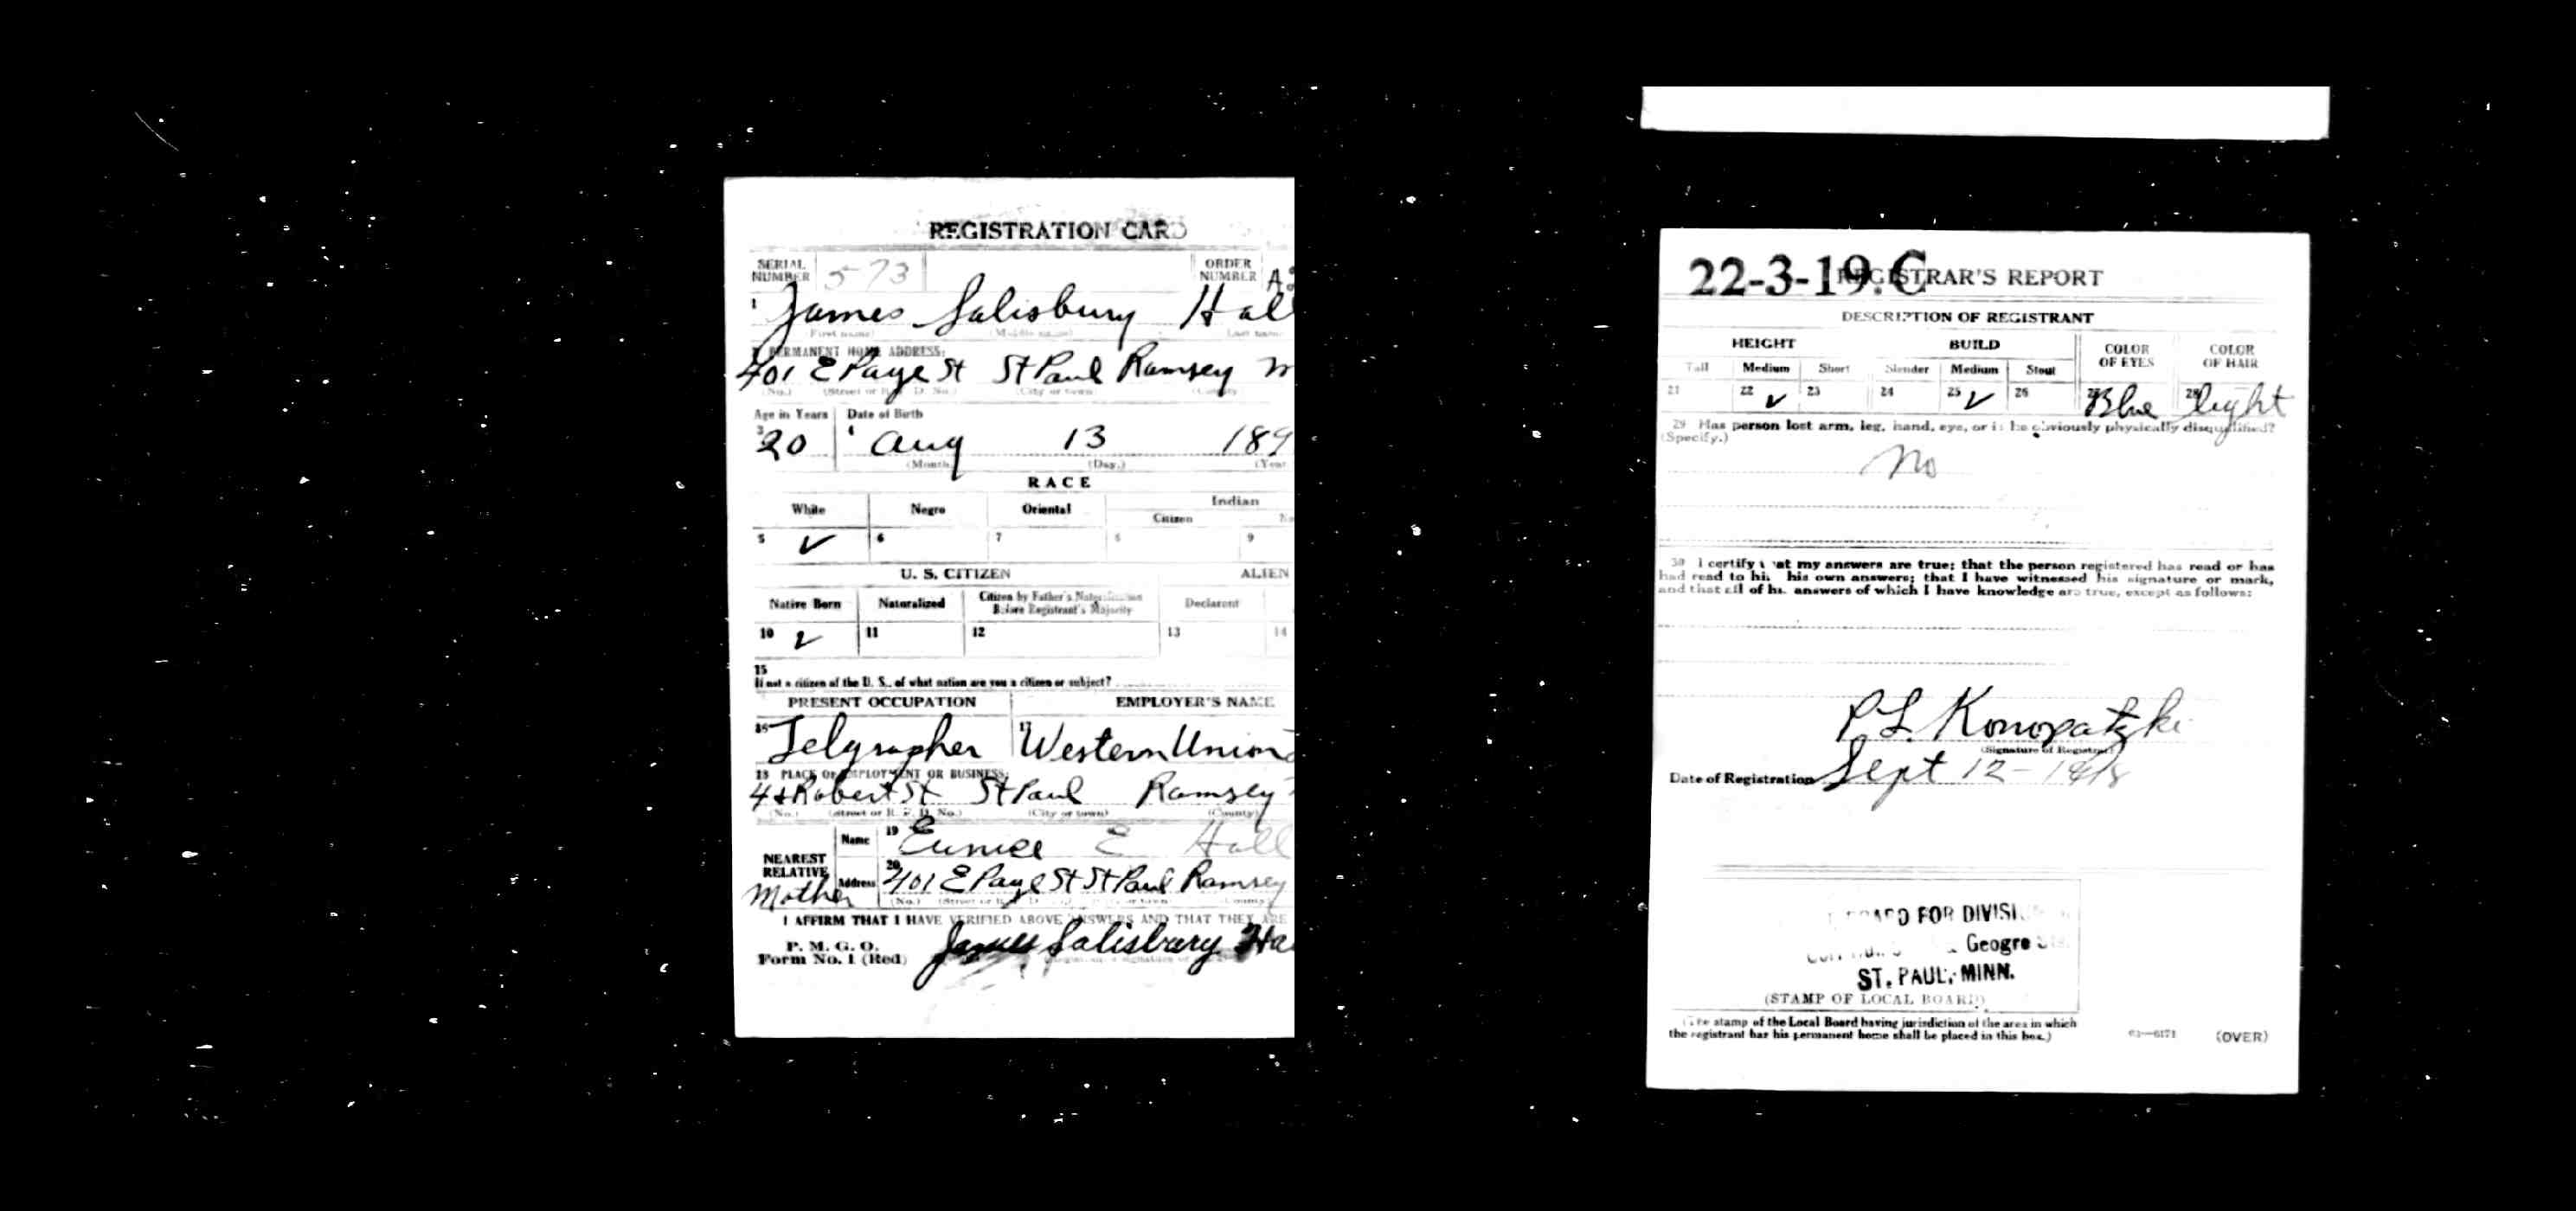 REGISTRATION CARD
SERIAL NUMBER 573 ORDER NUMBER A
1 James Salisbury Hal
(First name) (Middle name) (Last name)
PERMANENT HOME ADDRESS:
401 E Page St St Paul Ramsey M
(No.) (Street or R. F. D. No.) (City or town) (County
Age in Years Date of Birth
3 20 4 Aug 13 189
(Month) (Day.) (Year
RACE
White Negro Oriental Indian
Citizen
5 ✓ 6 7 8 9
U. S. CITIZEN ALIEN
Native Born Naturalized Citizen by Father's Naturalization Before Registrant's Majority Declarant
10 ✓ 11 12 13 14
15
If not a citizen of the U. S., of what nation are you a citizen or subject?
PRESENT OCCUPATION EMPLOYER'S NAME
16 Telgrapher 17 Western Union
18 PLACE OF EMPLOYMENT OR BUSINESS:
Robert St St Paul Ramsey
(No.) (Street or R. F. D. No.) (City or town) (County)
NEAREST RELATIVE Name 19 Eunice E Hall
Mother Address 20 401 E Page St St Paul Ramsey
(No.) (Street or R. F. D. (County)
I AFFIRM THAT I HAVE VERIFIED ABOVE ANSWERS AND THAT THEY ARE
P. M. G. O.
Form No. 1 (Red) James Salisbury Ha
22-3-19.C REGISTRAR'S REPORT
DESCRIPTION OF REGISTRANT
HEIGHT BUILD COLOR OF EYES COLOR OF HAIR
Tall Medium Short Slender Medium Stout
21 22 ✓ 23 24 25 ✓ 26 27 Blue 28 light
29 Has person lost arm, leg, hand, eye, or is he obviously physically disqualified?
(Specify.)
No
30 I certify that my answers are true; that the person registered has read or has
had read to him his own answers; that I have witnessed his signature or mark,
and that all of his answers of which I have knowledge are true, except as follows:
P. L. Konopatzki
(Signature of Registrar)
Date of Registration Sept 12 - 1918
BOARD FOR DIVISI
Geogre
ST. PAUL, MINN.
(STAMP OF LOCAL BOARD)
(The stamp of the Local Board having jurisdiction of the area in which
the registrant has his permanent home shall be placed in this box.)
03—6171 (OVER)